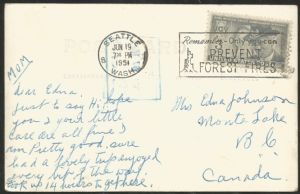 POST CARD
SEATTLE
JUN 19
PM
1951
WASH.
Remember - Only you can
PREVENT
FOREST FIRES
MOM
Dear Edna,
Just to say Hi, hope
you & your little
ones are all fine. I
am Pretty good, sure
had a lovely trip enjoyed
every bit of the way
took us 14 hours to get here.
Mrs Edna Johnson
Monte Lake
B C
Canada.